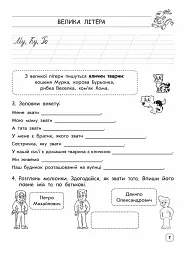 ВЕЛИКА ЛІТЕРА
Му, Бу, Го
З великої літери пишуться клички тварин:
кошеня Мурка, корова Бурьонка,
рибка Веселка, кім'як Хома.
3. Заповни анкету:
Мене звати
Мою маму звати
А тата звати
У мене є братик, якого звати
Сестричка, яку звати
У нашій сім'ї є домашня тварина з кличкою
Ми живемо
Наш будинок розташований на вулиці
4. Розглянь малюнки. Здогадайся, як звати тата. Впиши його
повне ім'я та по батькові.
Петро
Михайлович
Данило
Олександрович
7